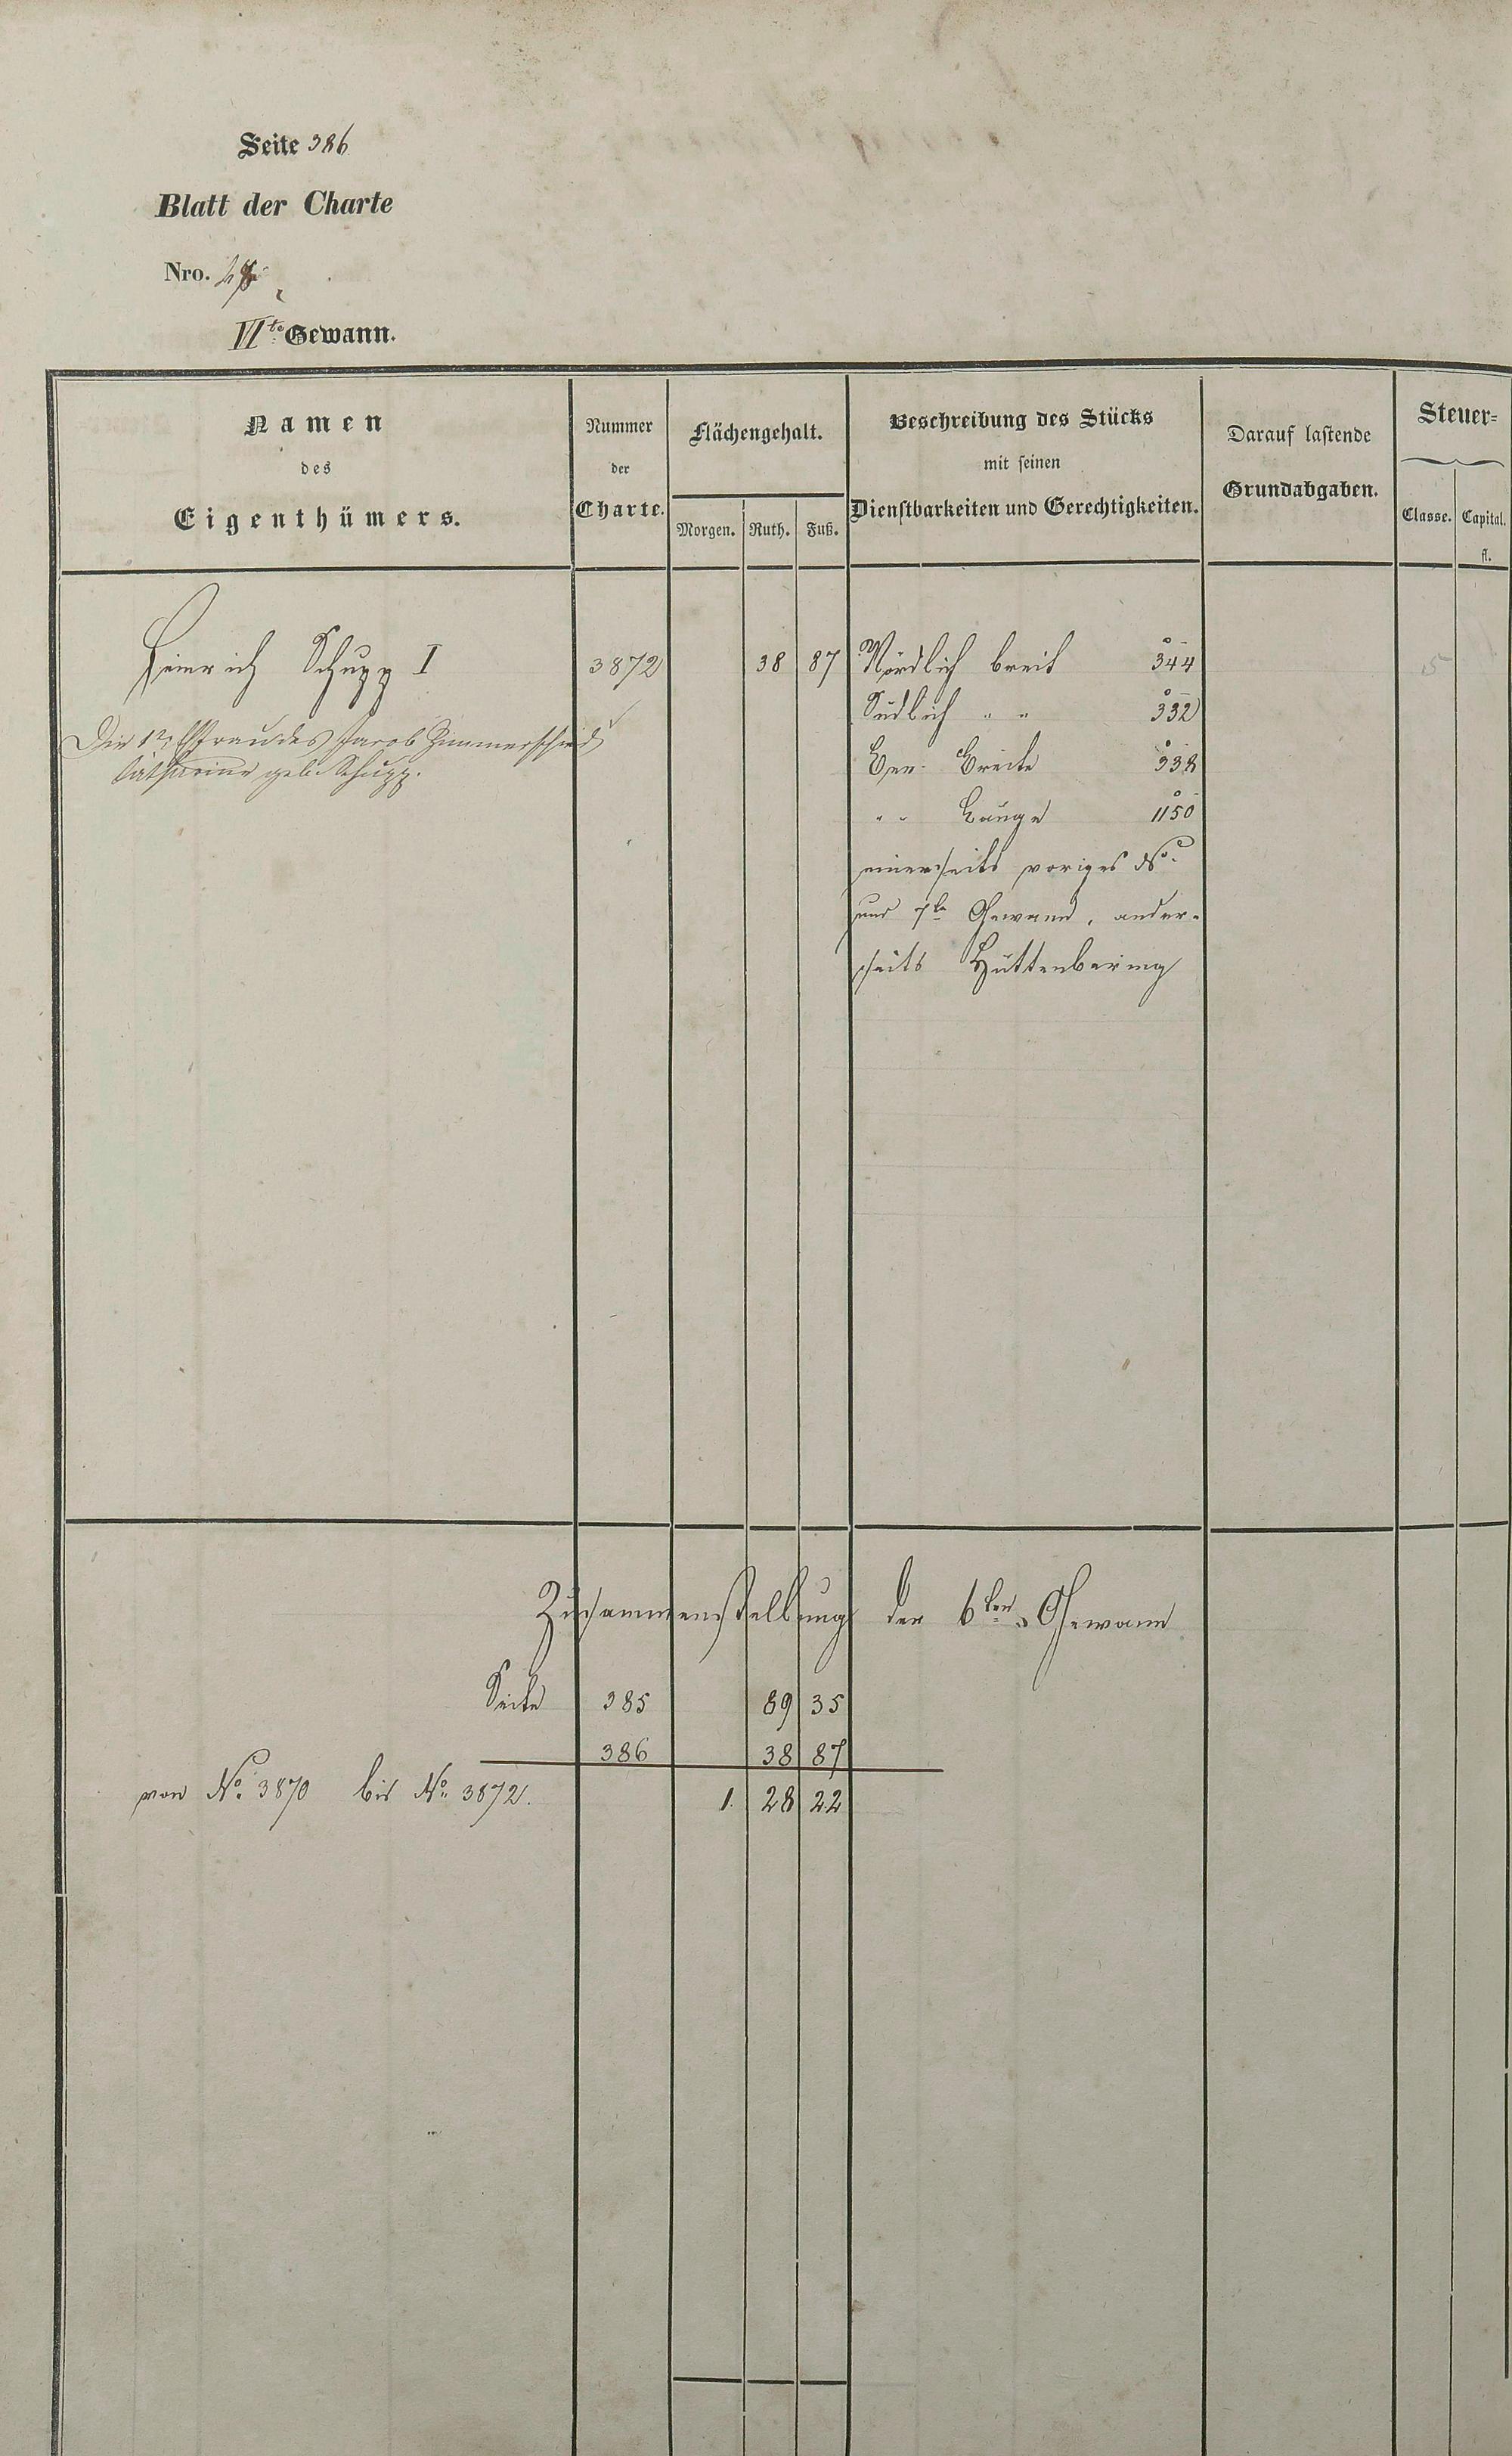 Seite 386
Blatt der Charte
Nro.
VIte Gewann.
Namen
des
Eigenthümers.
Nummer
der
Charte.
Flächengehalt.
Morgen. Ruth. Fuß.
Beschreibung des Stücks
mit seinen
Dienstbarkeiten und Gerechtigkeiten.
Darauf lastende
Grundabgaben.
Steuer=
Classe. Capital.
fl.
Heinrich Schupp I 3872 38 87 Nördlich breit 344
Südlich " " 332
Die 1te Ehefrau des Jacob Zimmerschied
Catharine geb. Schupp.
Breite 338
" " Länge 1150
einerseits voriges No
und 7te Gewann, ander-
seits Hüttenbering
Zusammenstellung der 6ten Gewann
Seite 385 89 35
386 38 87
von No. 3870 bis No. 3872. 1. 28 22